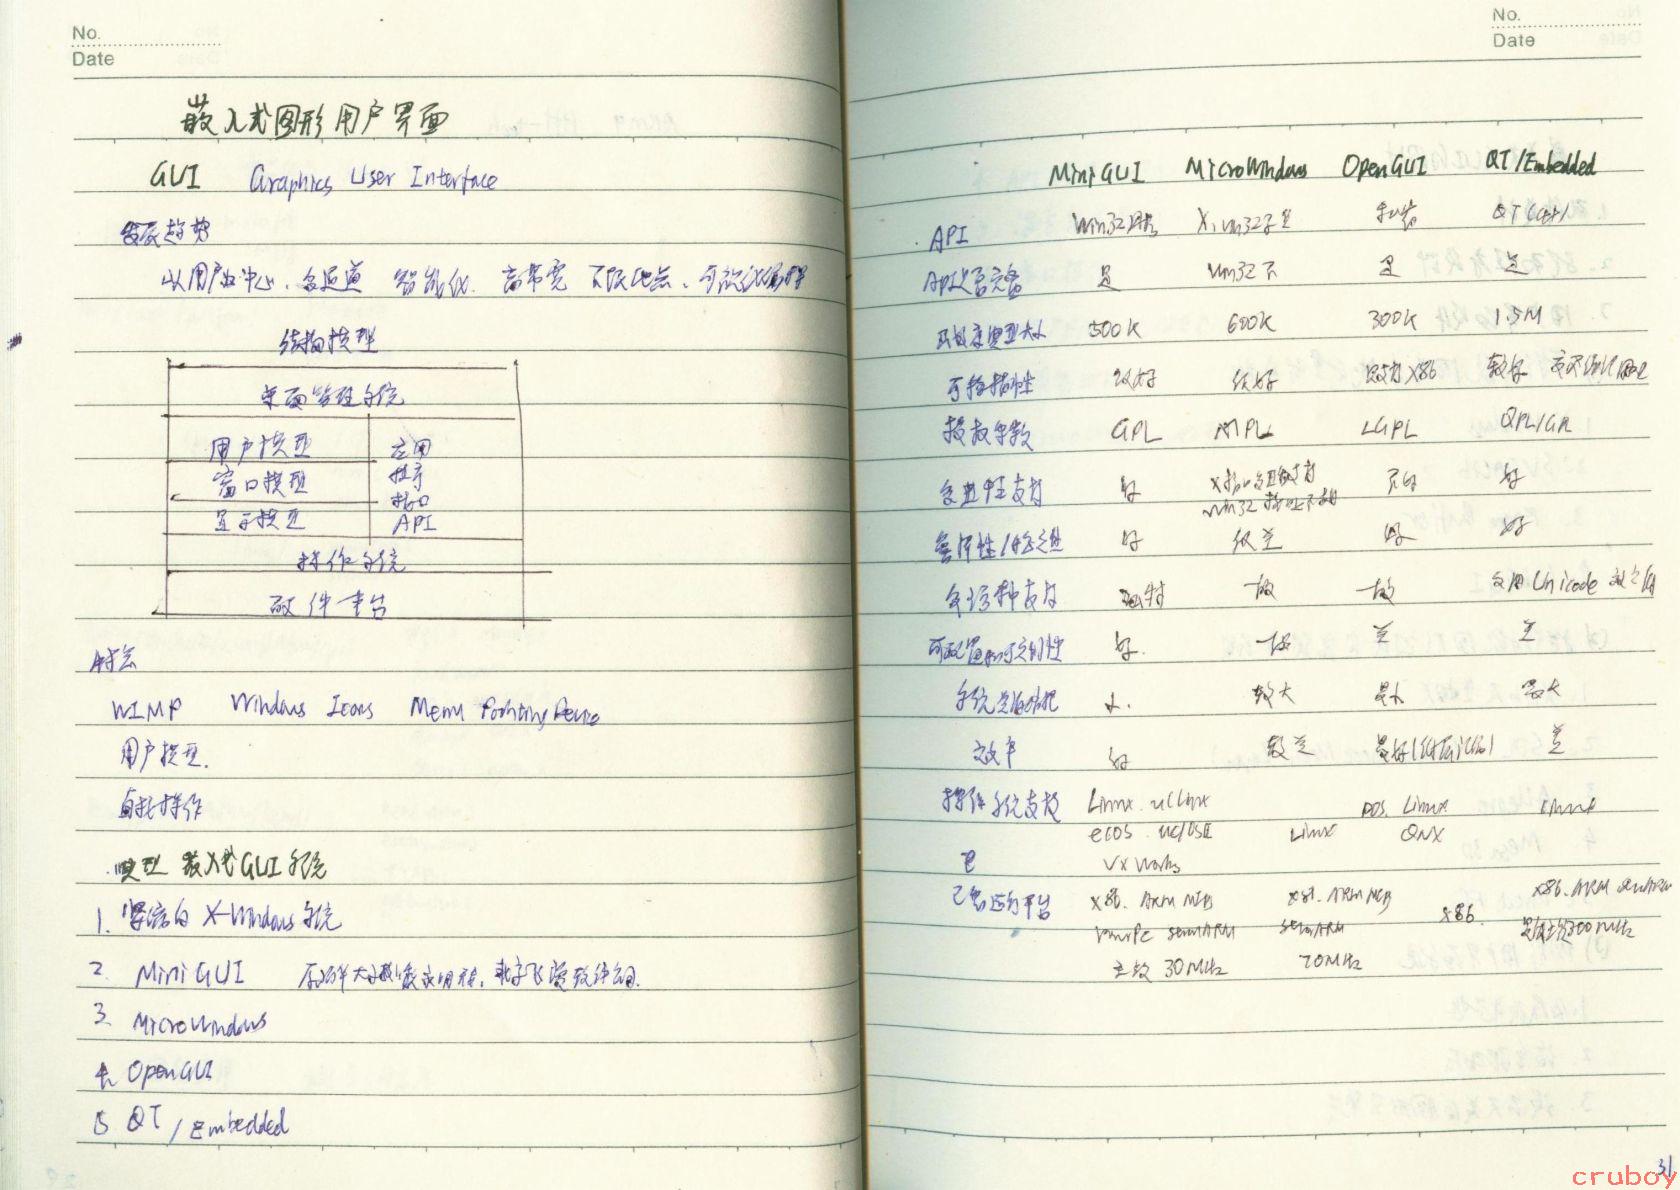 No.
Date
嵌入式图形用户界面
GUI Graphics User Interface
发展趋势
以用户为中心、多通道 智能化. 高带宽
结构模型
桌面管理系统
用户模型 应用
窗口模型 程序
接口
显示模型 API
操作系统
硬件平台
特点
WIMP Windows Icons Menu Pointing Device
用户模型.
直接操作
典型 嵌入式GUI系统
1. 紧缩的 X-Windows 系统
2. MiniGUI
3 MicroWindows
4. OpenGUI
5 QT / Embedded
No.
Date
MiniGUI MicroWindows OpenGUI QT/Embedded
API Win32 X, Win32子集 私有 QT (C++)
API是否完备 是 Win32不 是 是
函数库典型大小 500K 600K 300K 1.5M
可移植性 很好 很好 只支持X86 较好
授权条款 GPL MPL LGPL QPL/GPL
多进程支持 好 X接口 不好 好
Win32
健壮性/正确性 好 很差 好 好
多语种支持 独特 一般 一般 采用Unicode
可配置和可定制性 好. 一般 差 差
系统资源消耗 小. 较大 最小 最大
效率 好 较差 最好 差
操作系统支持 Linux. uClinux DOS. Linux Linux
eCOS. uC/OSII Linux QNX
VxWorks
已知运行平台 X86. ARM MIPS X86. ARM MIPS X86. X86. ARM
PowerPC StrongARM StrongARM
主频 30MHz 70MHz
31
cruboy